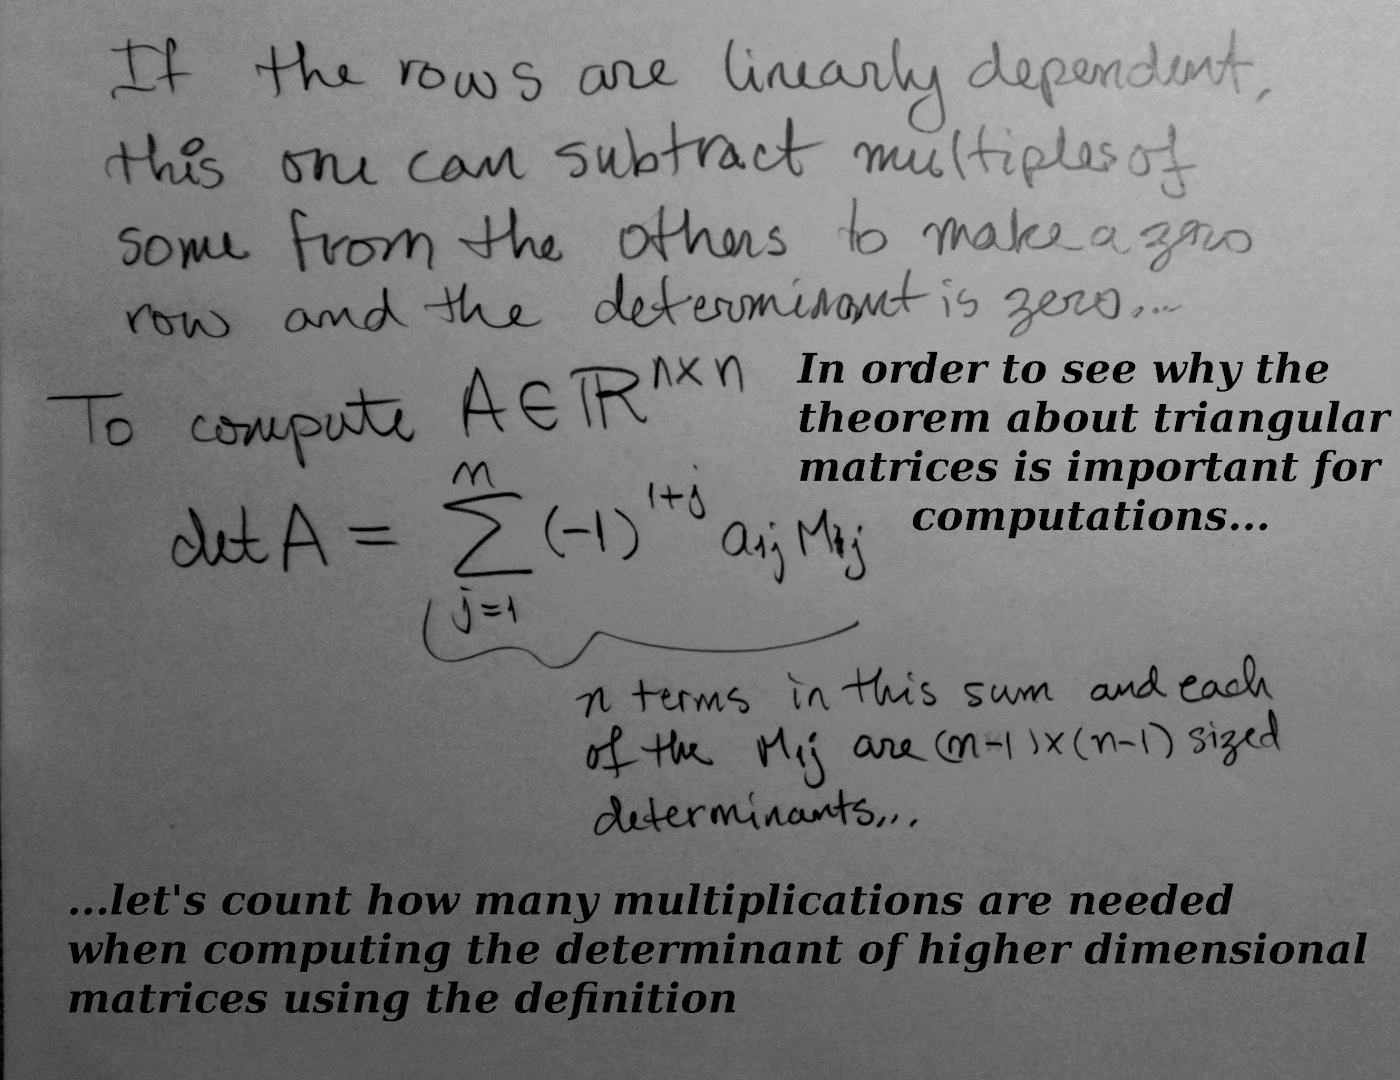 If the rows are linearly dependent,
this one can subtract multiples of
some from the others to make a zero
row and the determinant is zero...
To compute A ∈ ℝ^{n×n}
In order to see why the
theorem about triangular
matrices is important for
computations...
det A = \sum_{j=1}^{n} (-1)^{1+j} a_{1j} M_{1j}
n terms in this sum and each
of the M_{1j} are (n-1)×(n-1) sized
determinants...
...let's count how many multiplications are needed
when computing the determinant of higher dimensional
matrices using the definition